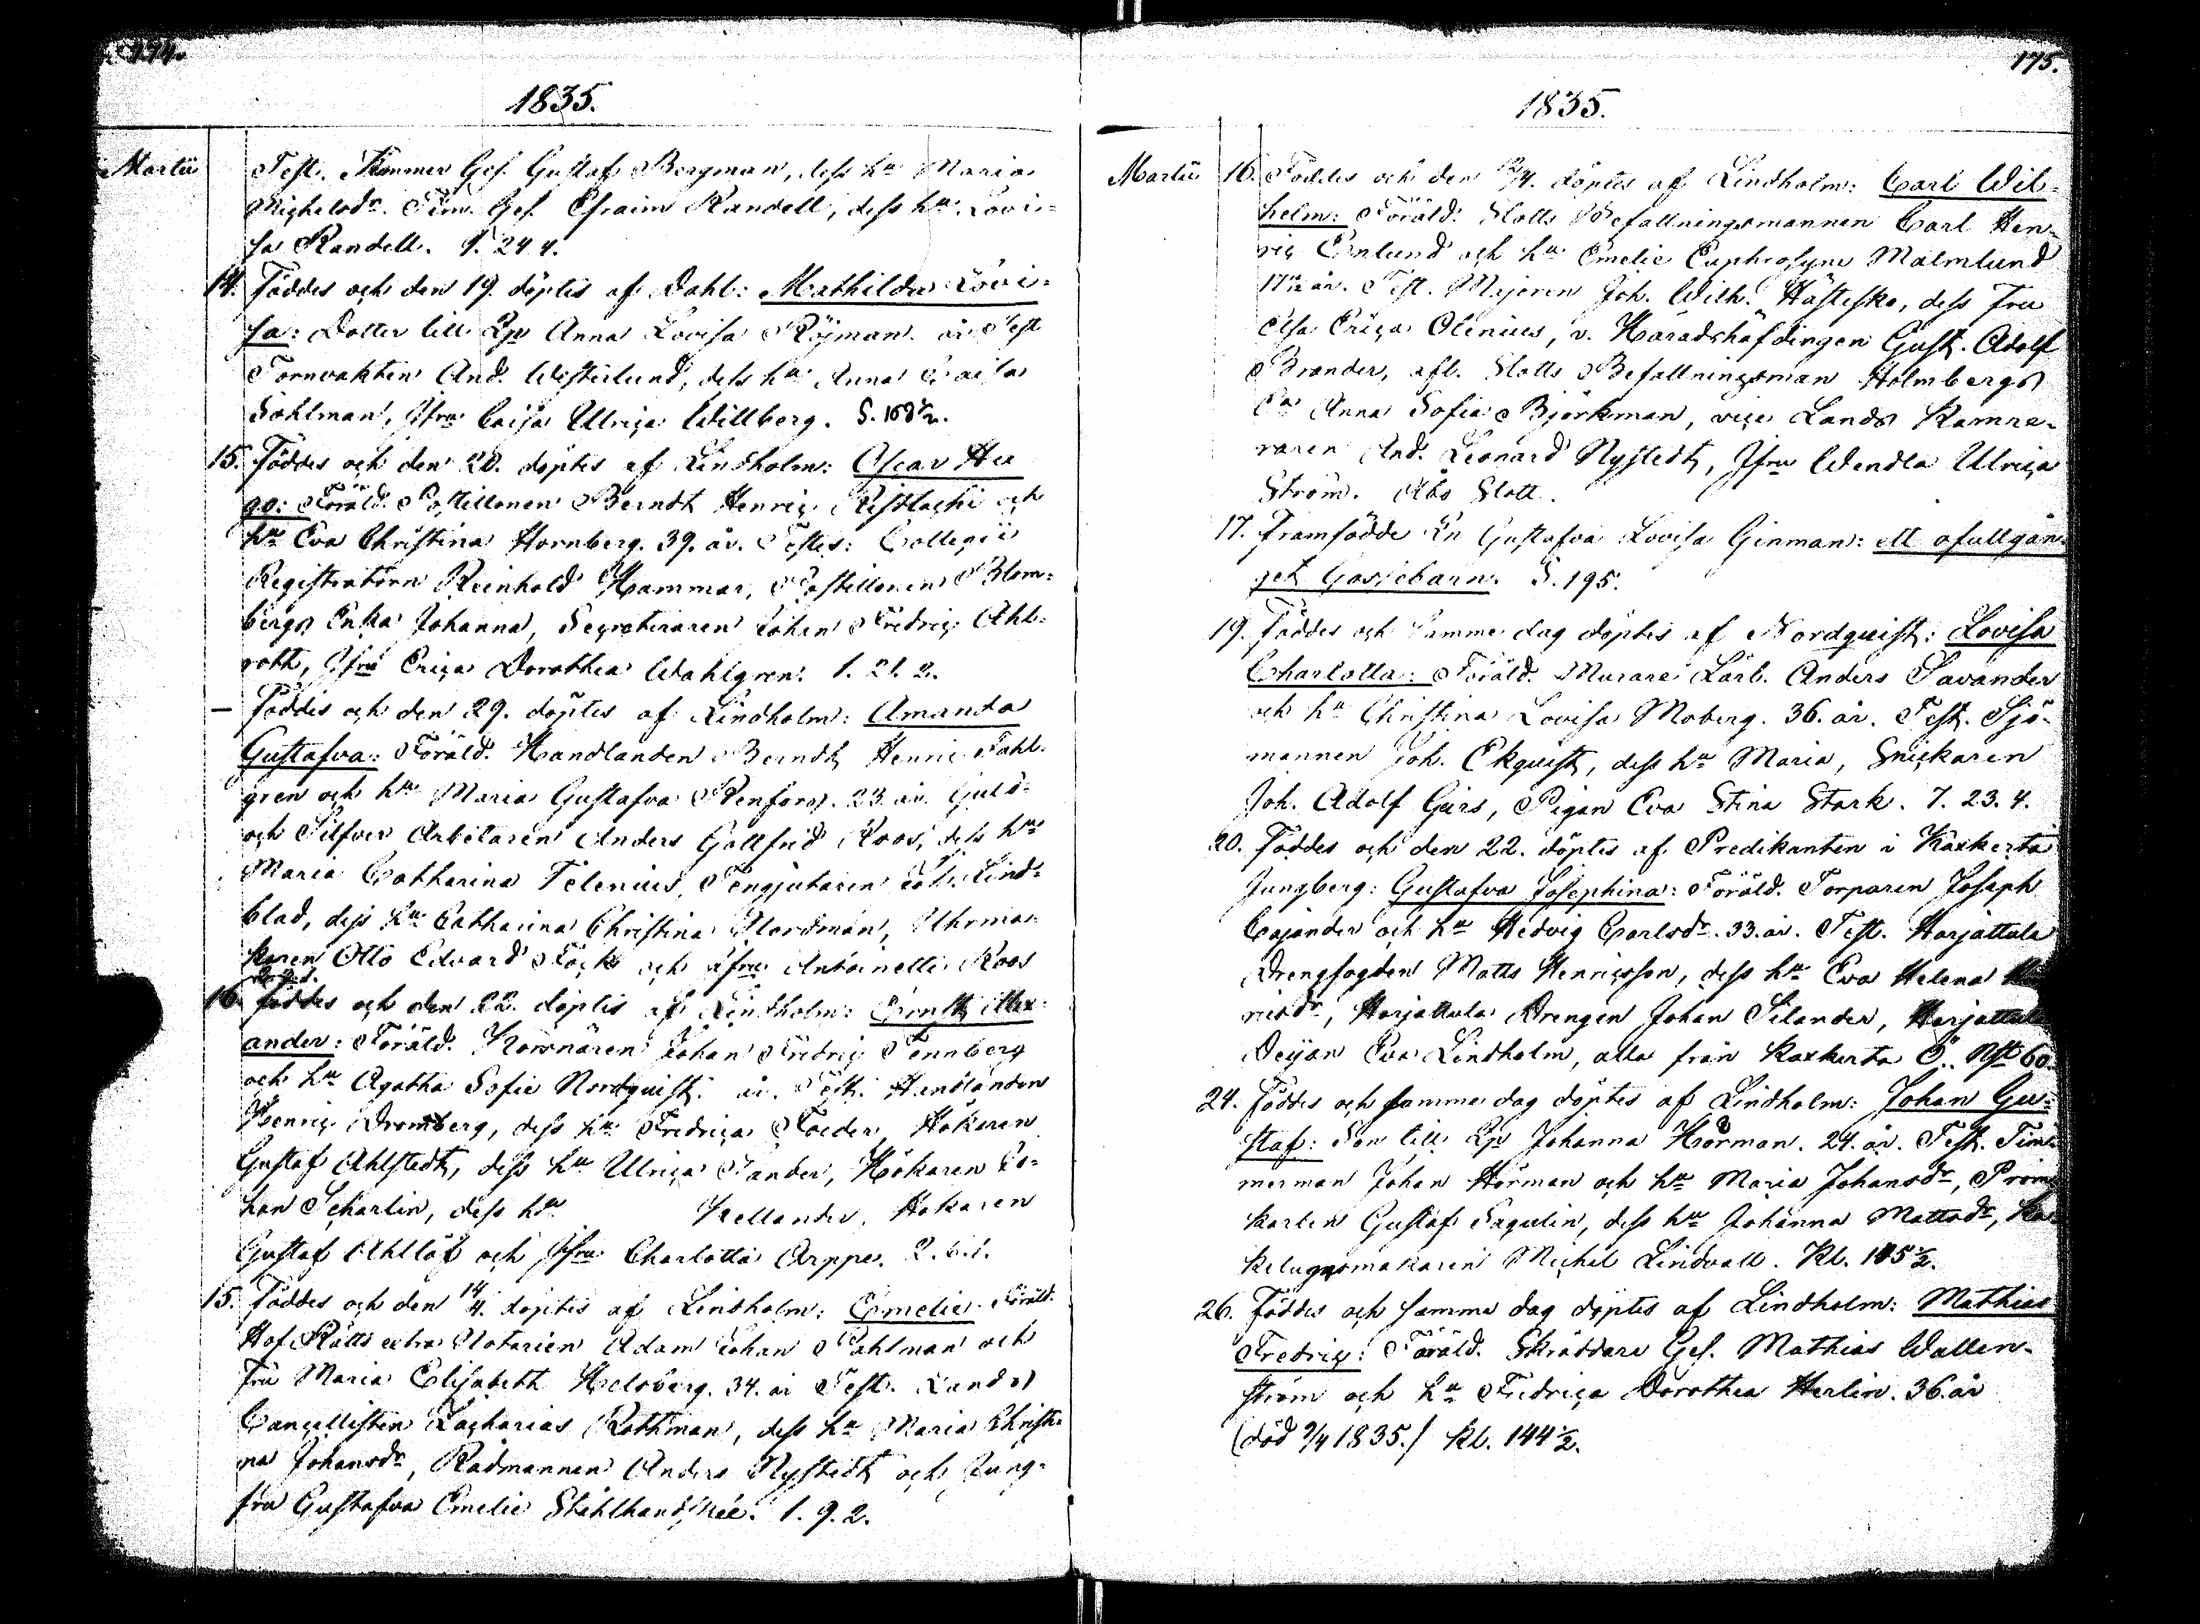 174.
1835.
Martii Test. Timmer Ges. Gustaf Bergman, dess hu Maria
Michelsdr. Tim. Ges. Efraim Randell, dess hu Lovi-
sa Randell. 1. 24 4.
14. Föddes och den 19. döptes af Dahl: Mathilda Lovi-
sa: Dotter till Lp Anna Lovisa Röjman. år Test
Tornvakten And. Westerlund, dess hu Anna Caisa
Sohlman, Jfru Caisa Ulrica Willberg. S. 168½.
15. Föddes och den 20. döptes af Lindholm: Oscar Hu
go: Föräld. Postillonen Berndt Henric och
hu Eva Christina Hornberg. 39. år. Testes: Collegii
Registratorn Reinhold Hammar, Postillonen Blom-
bergs Enka Johanna, Secreteraren Johan Fredric Ahl-
roth, Jfru Erica Dorothea Wahlgren. 1. 21. 2.
— Föddes och den 29. döptes af Lindholm: Amanda
Gustafva: Föräld. Handlanden Berndt Henric Fahl-
gren och hu Maria Gustafva Renfors. 23. år. Guld-
och Silfver Arbetaren Anders Gottfrid Roos, dess hu
Maria Catharina Telenius, Tengjutaren Joh. Lind-
blad, dess hu Catharina Christina Nordman, Uhrma-
karen Otto Edvard Fock och Jfru Antoinette Roos
16. föddes och den 22. döptes af Lindholm: Ernst Alex-
ander: Föräld. Körsnären Johan Fredric Tennberg
och hu Agatha Sofie Nordquist. år. Test. Handlanden
Henric Dromberg, dess hu Fredrica Floeder, Hökaren
Gustaf Ahlstedt, dess hu Ulrica Sander, Hökaren Jo-
han Scharlin, dess hu Kellander, Hökaren
Gustaf Ahllöf och Jfru Charlotta Arppe. 2. 6. 1.
15. Föddes och den 14/4. döptes af Lindholm: Emelie. Föräld.
Hof Rätts extra Notarien Adam Johan Pahlman och
Fru Maria Elisabeth Helsberg. 34. år Test. Lands
Cancellisten Zacharias Rothman, dess hu Maria Christi
na Johansdr, Rådmannen Anders Nystedt och Jung-
fru Gustafva Emelie Stålhandske. 1. 9. 2.
175.
1835.
Martii 16. Föddes och den döptes af Lindholm: Carl Wil-
helm: Föräld. Slotts Befallningsmannen Carl Hen-
ric Enlund och hu Emelie Euphrosyne Malmlund
år. Test. Majoren Joh. Wilh. Hästesko, dess Fru
Elsa Erica Olenius, v. Häradshöfdingen Gust. Adolf
Brander, afl. Slotts Befallningsman Holmbergs
Ea Anna Sofia Björkman, vice Lands Kamre-
raren And. Leonard Nystedt, Jfru Wendla Ulrica
Ström. Åbo Slott.
17. Framfödde En Gustafva Lovisa Ginman: ett ofullgån-
get Gossebarn. S. 195.
19. Föddes och Samme dag döptes af Nordquist: Lovisa
Charlotta: Föräld. Murare Lärb. Anders Savander
och hu Christina Lovisa Moberg. 36. år. Test. Sjö-
mannen Joh. Ekquist, dess hu Maria, Snickaren
Joh. Adolf Gürs, Pigan Eva Stina Stark. 7. 23. 4.
20. Föddes och den 22. döptes af Predikanten i Kaxkerta
Jungberg: Gustafva Josephina: Föräld. Torparen Joseph
Cajander och hu Hedvig Carlsdr. 33. år. Test. Harjattula
Drengfogden Matts Henricsson, dess hu Eva Helena
ricsdr, Harjattula Drengen Johan Silander, Harjattula
Dejan Eva Lindholm, alla från Kaxkerta Ö.. Nst 60.
24. Föddes och samma dag döptes af Lindholm: Johan Gu-
staf: Son till Lp Johanna Hörman. 24. år. Test. Tim-
merman Johan Hörman och hu Maria Johansdr, Pråm
karlen Gustaf Sagulin, dess hu Johanna Mattsdr, Ka-
kelugnsmakaren Michel Lindvall. Kl. 185½.
26. Föddes och samma dag döptes af Lindholm: Mathias
Fredric: Föräld. Skräddare Ges. Mathias Wallen-
ström och hu Fredrica Dorothea Herlin. 36. år
(död 9/4 1835.) Kl. 144½.